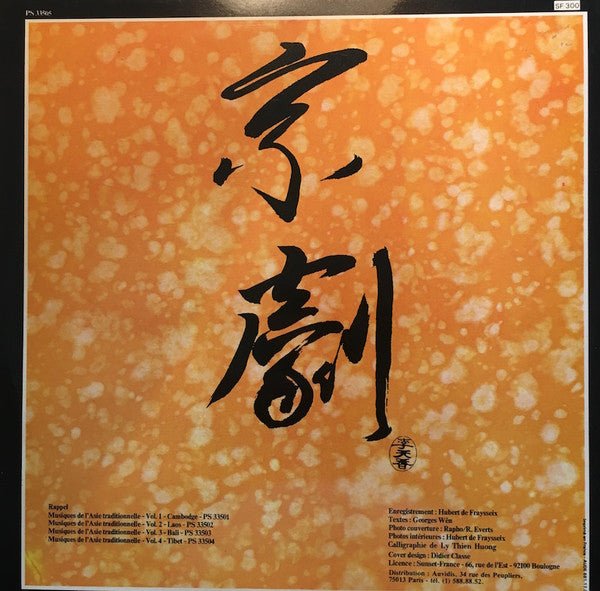 PS 33505
SF 300
京
劇
李天香
Rappel
Musiques de l'Asie traditionnelle - Vol. 1 - Cambodge - PS 33501
Musiques de l'Asie traditionnelle - Vol. 2 - Laos - PS 33502
Musiques de l'Asie traditionnelle - Vol. 3 - Bali - PS 33503
Musiques de l'Asie traditionnelle - Vol. 4 - Tibet - PS 33504
Enregistrement : Hubert de Fraysseix
Textes : Georges Wên
Photo couverture : Rapho/R. Everts
Photos intérieures : Hubert de Fraysseix
Calligraphie de Ly Thien Huong
Cover design : Didier Classe
Licence : Sunset-France - 66, rue de l'Est - 92100 Boulogne
Distribution : Auvidis, 34 rue des Peupliers,
75013 Paris - tél. (1) 588.88.52.